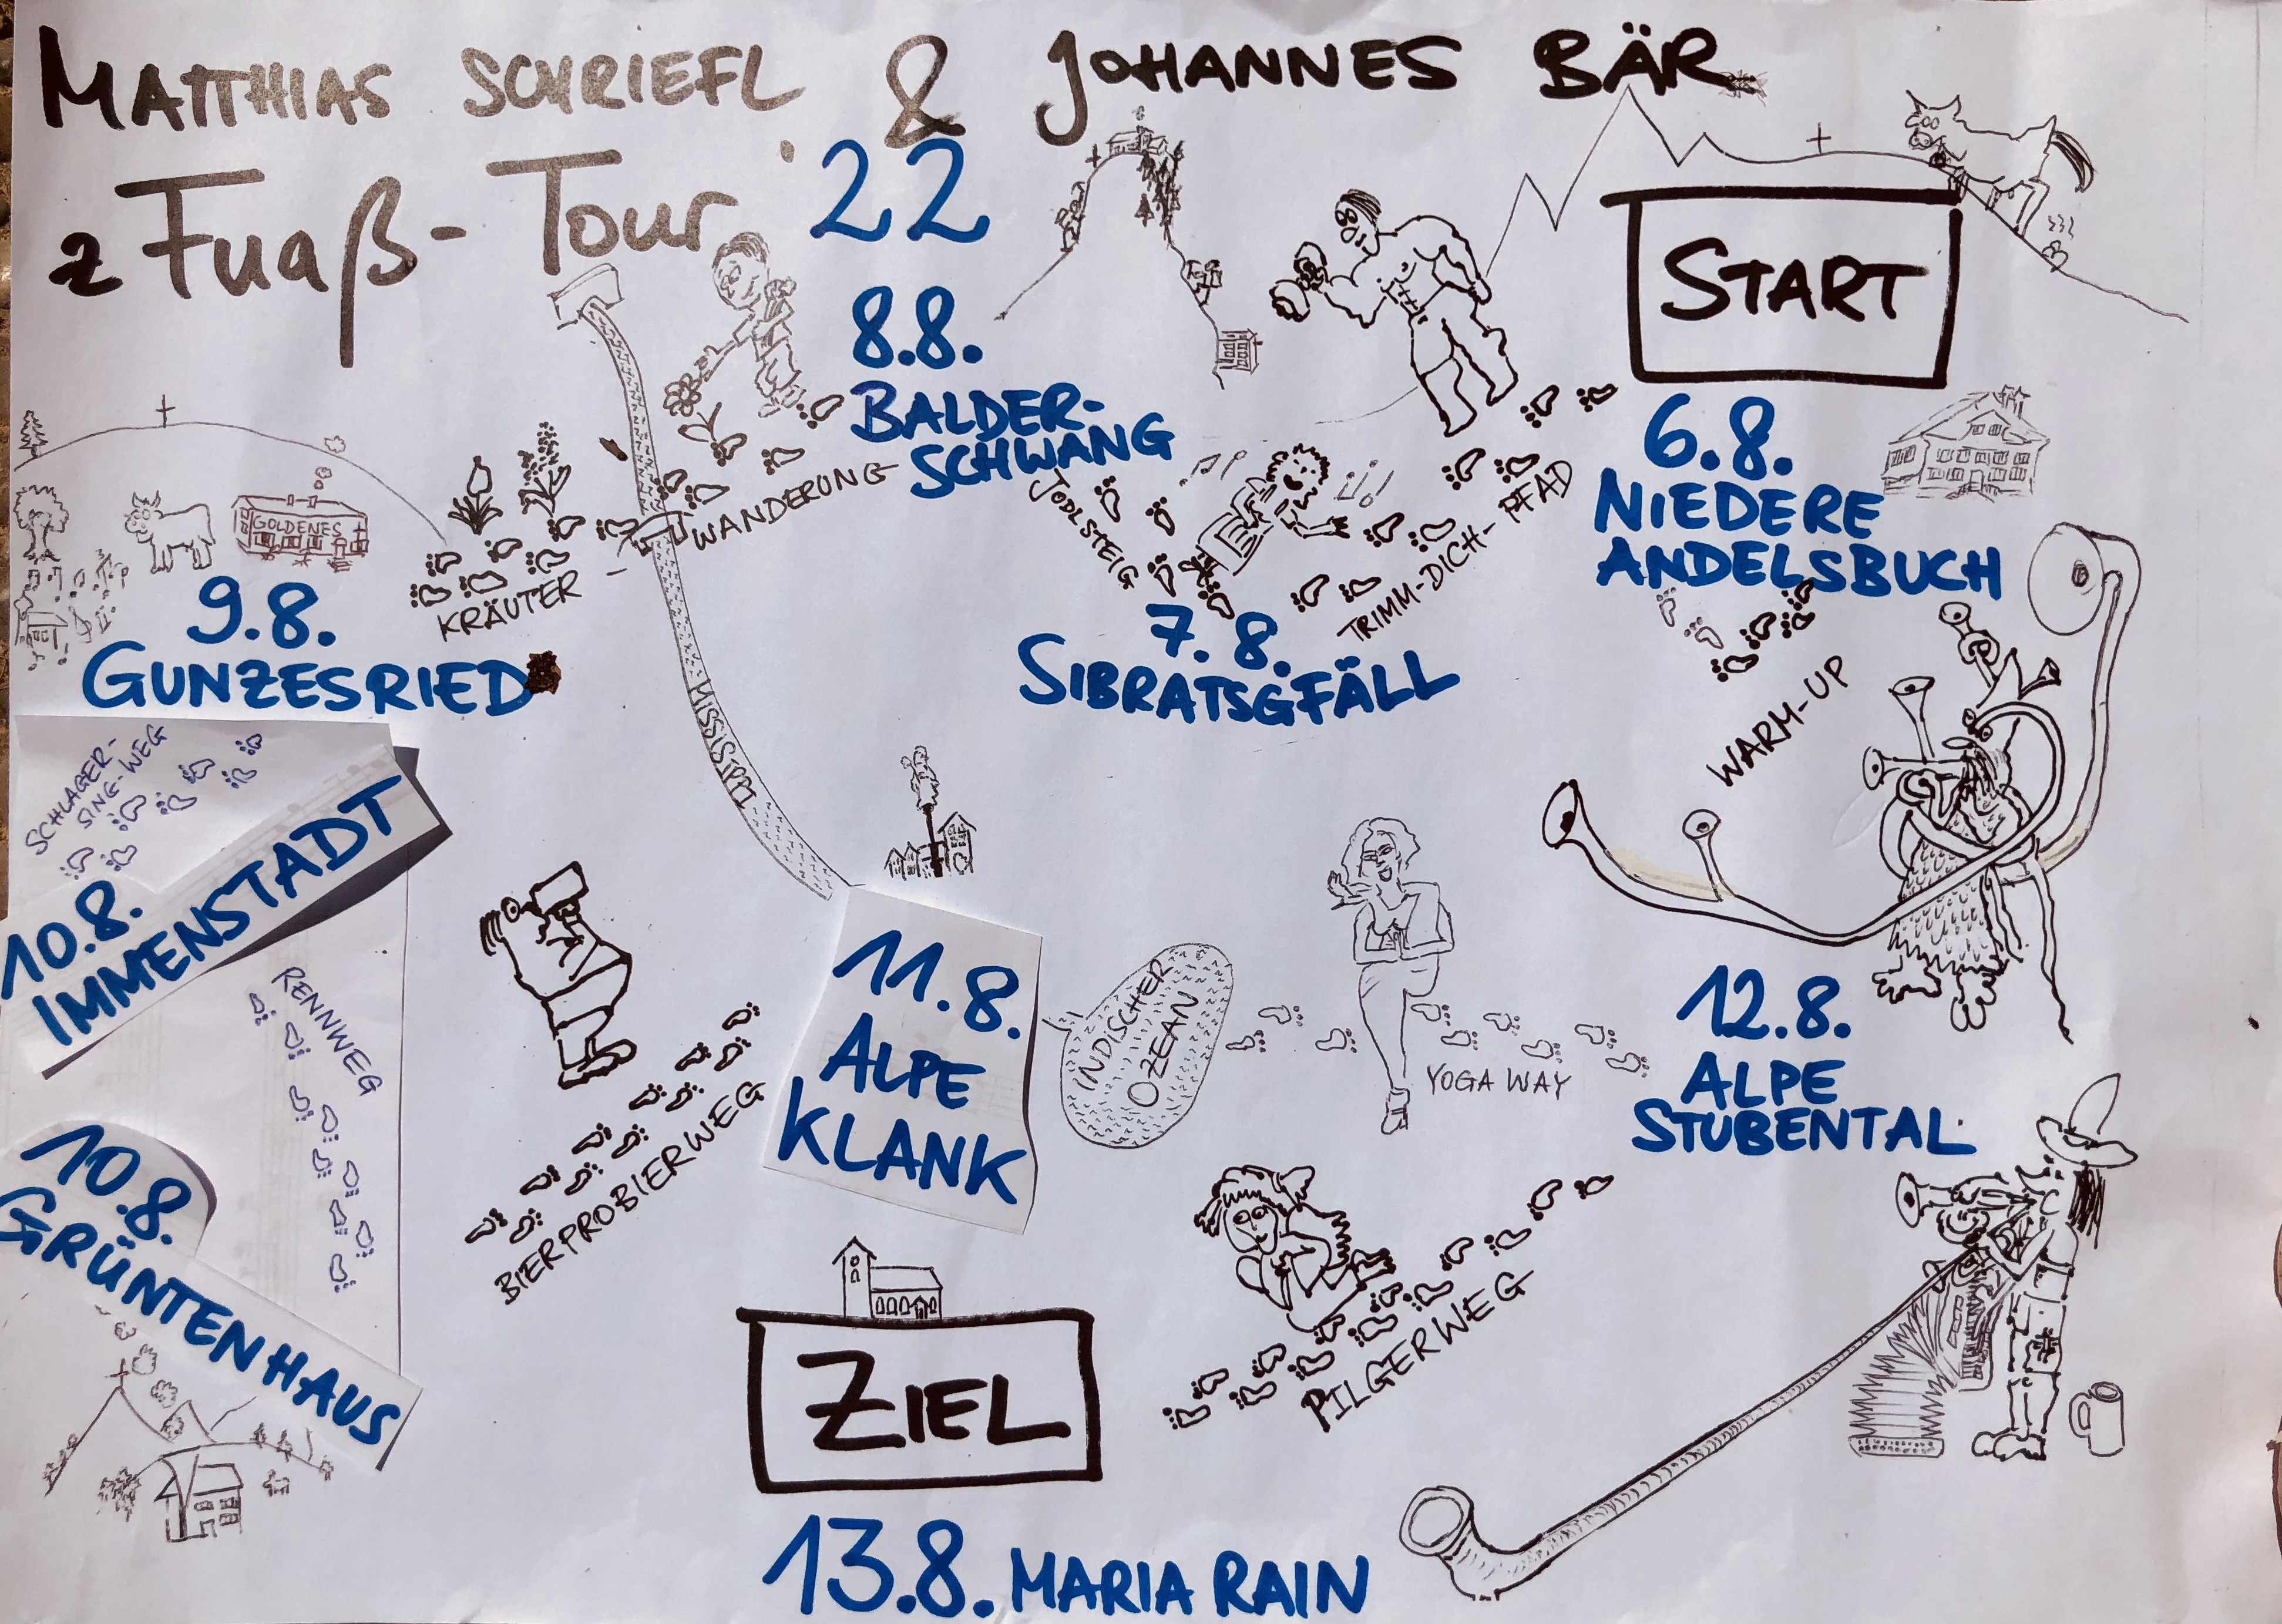 MATTHIAS SCHRIEFL & JOHANNES BÄR
z Fuaß-Tour '22
START
6.8.
NIEDERE
ANDELSBUCH
WARM-UP
TRIMM-DICH-PFAD
7.8.
SIBRATSGFÄLL
JODLSTEIG
8.8.
BALDER-
SCHWANG
WANDERUNG
KRÄUTER
MISSISSIPPI
GOLDENES +
9.8.
GUNZESRIED
SCHLAGER-
SING-WEG
10.8.
IMMENSTADT
RENNWEG
10.8.
GRÜNTENHAUS
BIERPROBIERWEG
11.8.
ALPE
KLANK
INDISCHER
OZEAN
YOGA WAY
12.8.
ALPE
STUBENTAL
PILGERWEG
ZIEL
13.8. MARIA RAIN